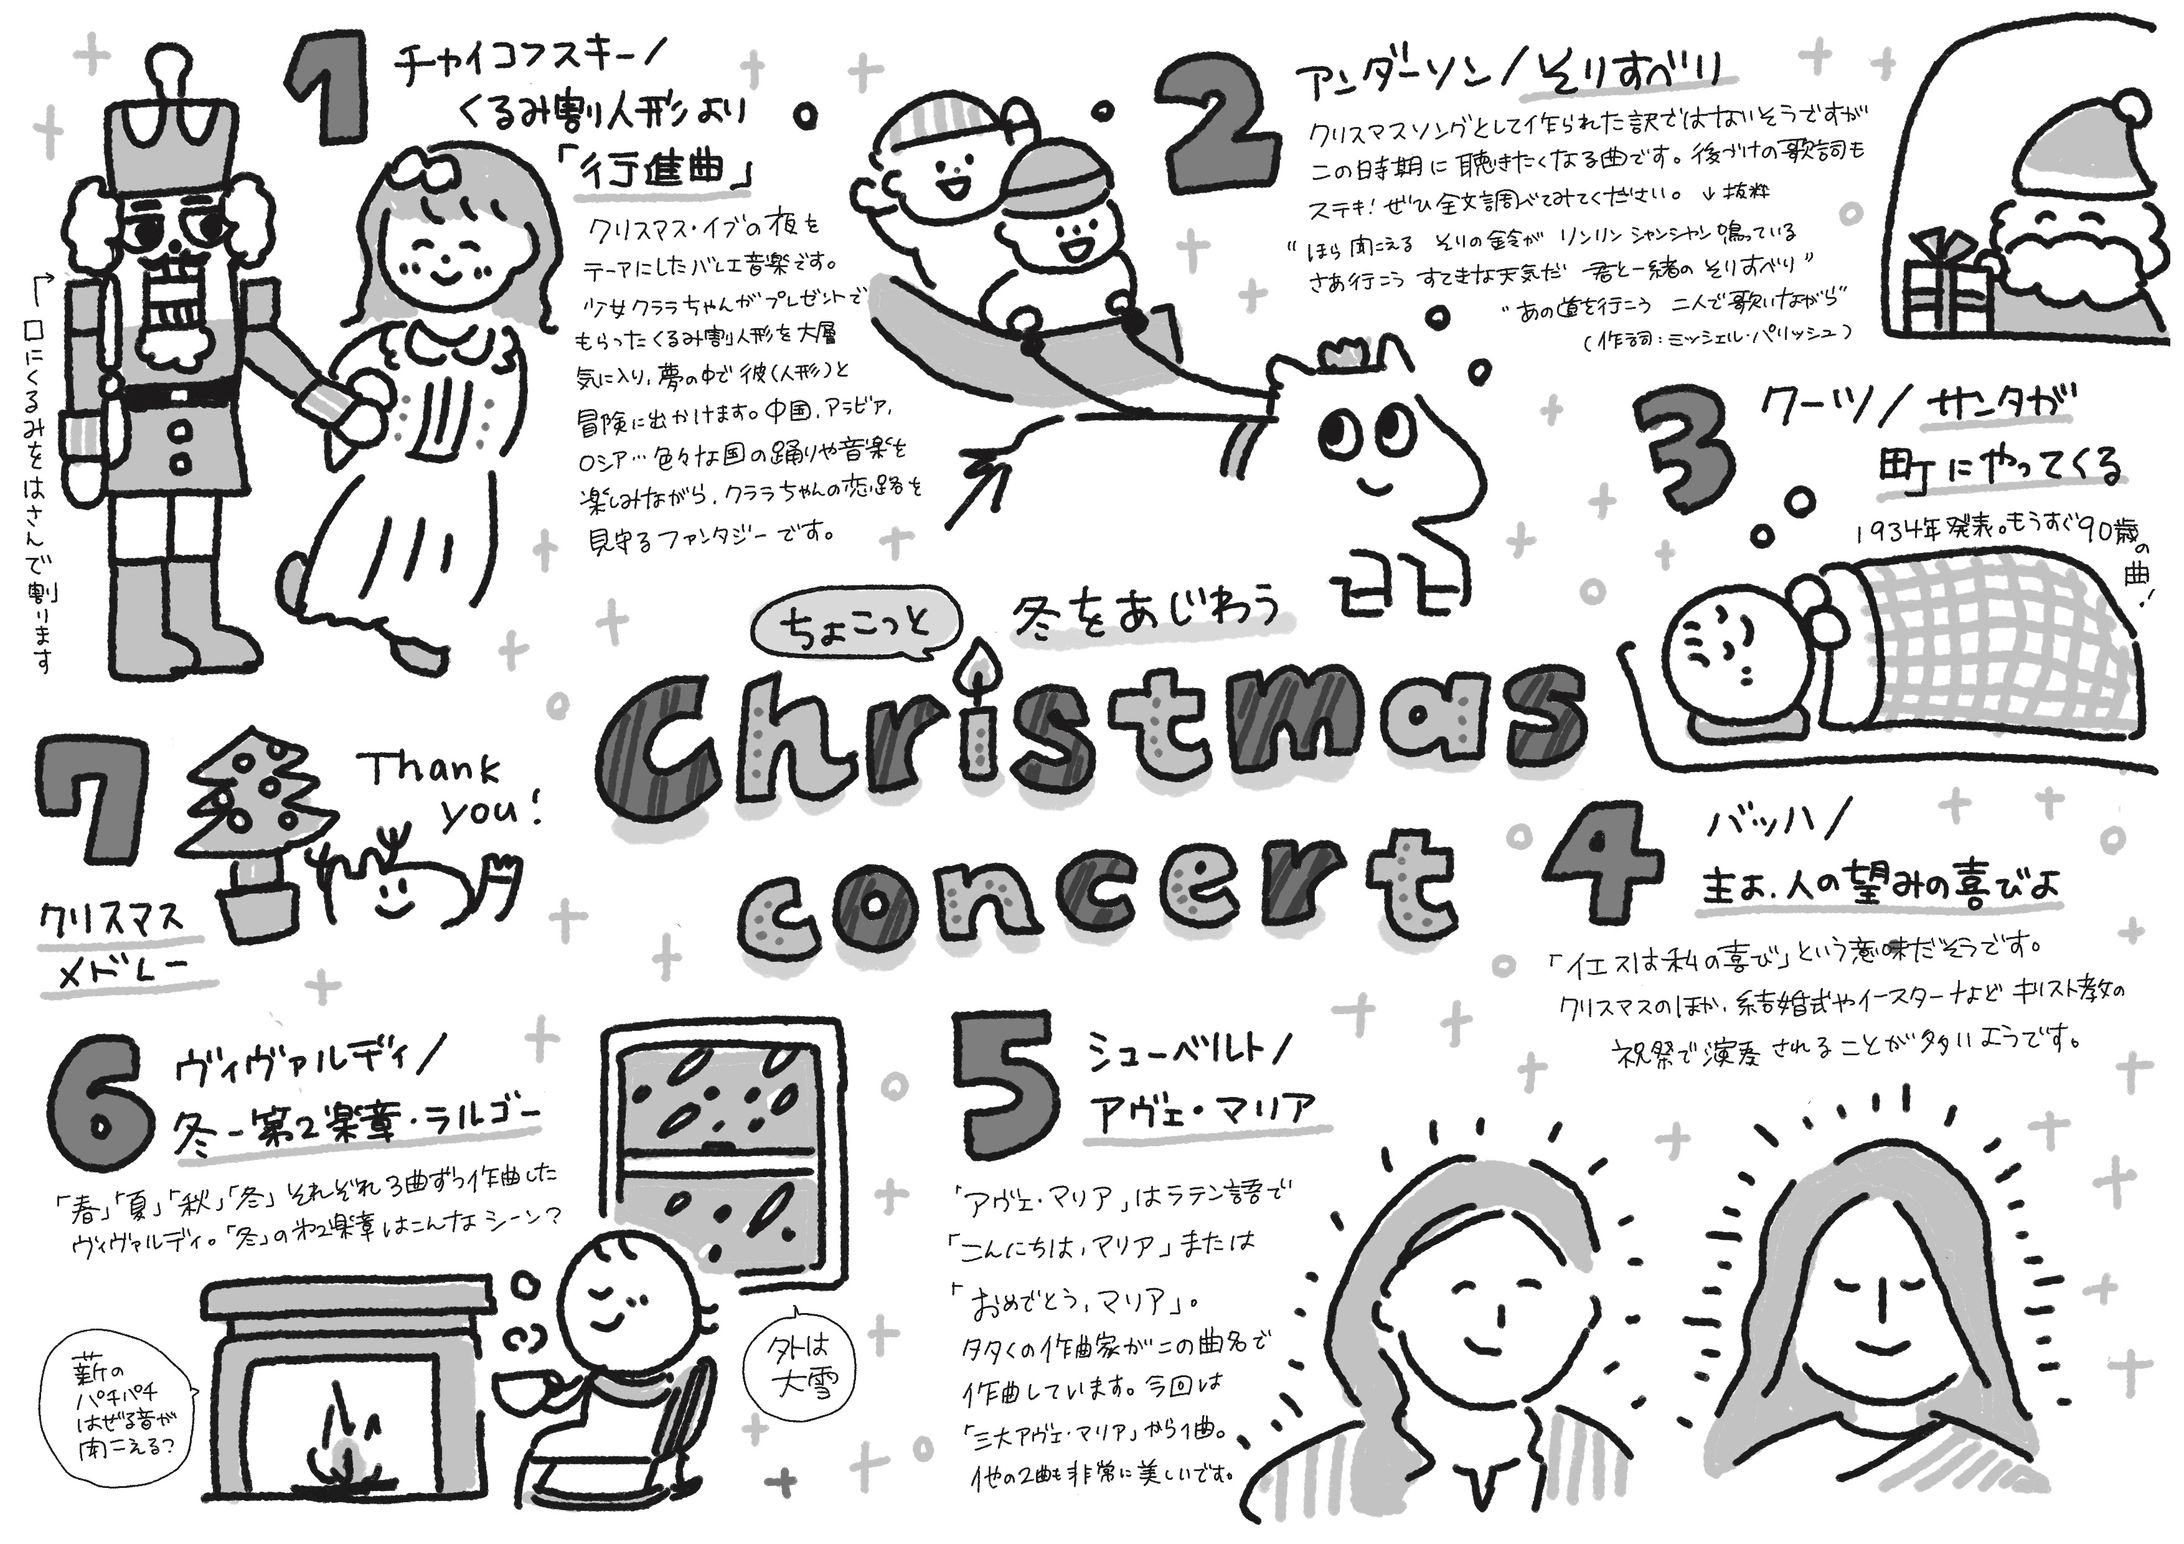 1
チャイコフスキー/
くるみ割り人形より
「行進曲」
クリスマス・イブの夜を
テーマにしたバレエ音楽です。
少女クララちゃんがプレゼントで
もらったくるみ割り人形を大層
気に入り、夢の中で彼(人形)と
冒険に出かけます。中国、アラビア、
ロシア…色々な国の踊りや音楽を
楽しみながら、クララちゃんの恋路を
見守るファンタジーです。
口にくるみをはさんで割ります
2
アンダーソン/そりすべり
クリスマスソングとして作られた訳ではないそうですが
この時期に聴きたくなる曲です。後づけの歌詞も
ステキ!ぜひ全文調べてみてください。↓抜粋
"ほら聞こえる そりの鈴が リンリン シャンシャン鳴っている
さあ行こう すてきな天気だ 君と一緒の そりすべり"
"あの道を行こう 二人で歌いながら"
(作詞:ミッシェル・パリッシュ)
3
ワーツ/サンタが
町にやってくる
1934年発表。もうすぐ90歳の曲!
ちょこっと
冬をあじわう
Christmas
concert
4
バッハ/
主よ、人の望みの喜びよ
「イエスは私の喜び」という意味だそうです。
クリスマスのほか、結婚式やイースターなど キリスト教の
祝祭で演奏されることが多いようです。
5
シューベルト/
アヴェ・マリア
「アヴェ・マリア」はラテン語で
「こんにちは、マリア」または
「おめでとう、マリア」。
多くの作曲家がこの曲名で
作曲しています。今回は
「三大アヴェ・マリア」から1曲。
他の2曲も非常に美しいです。
6
ヴィヴァルディ/
冬-第2楽章・ラルゴー
「春」「夏」「秋」「冬」それぞれ3曲ずつ作曲した
ヴィヴァルディ。「冬」の第2楽章はこんなシーン?
薪の
パチパチ
はぜる音が
聞こえる?
外は
大雪
7
クリスマス
メドレー
Thank
you!